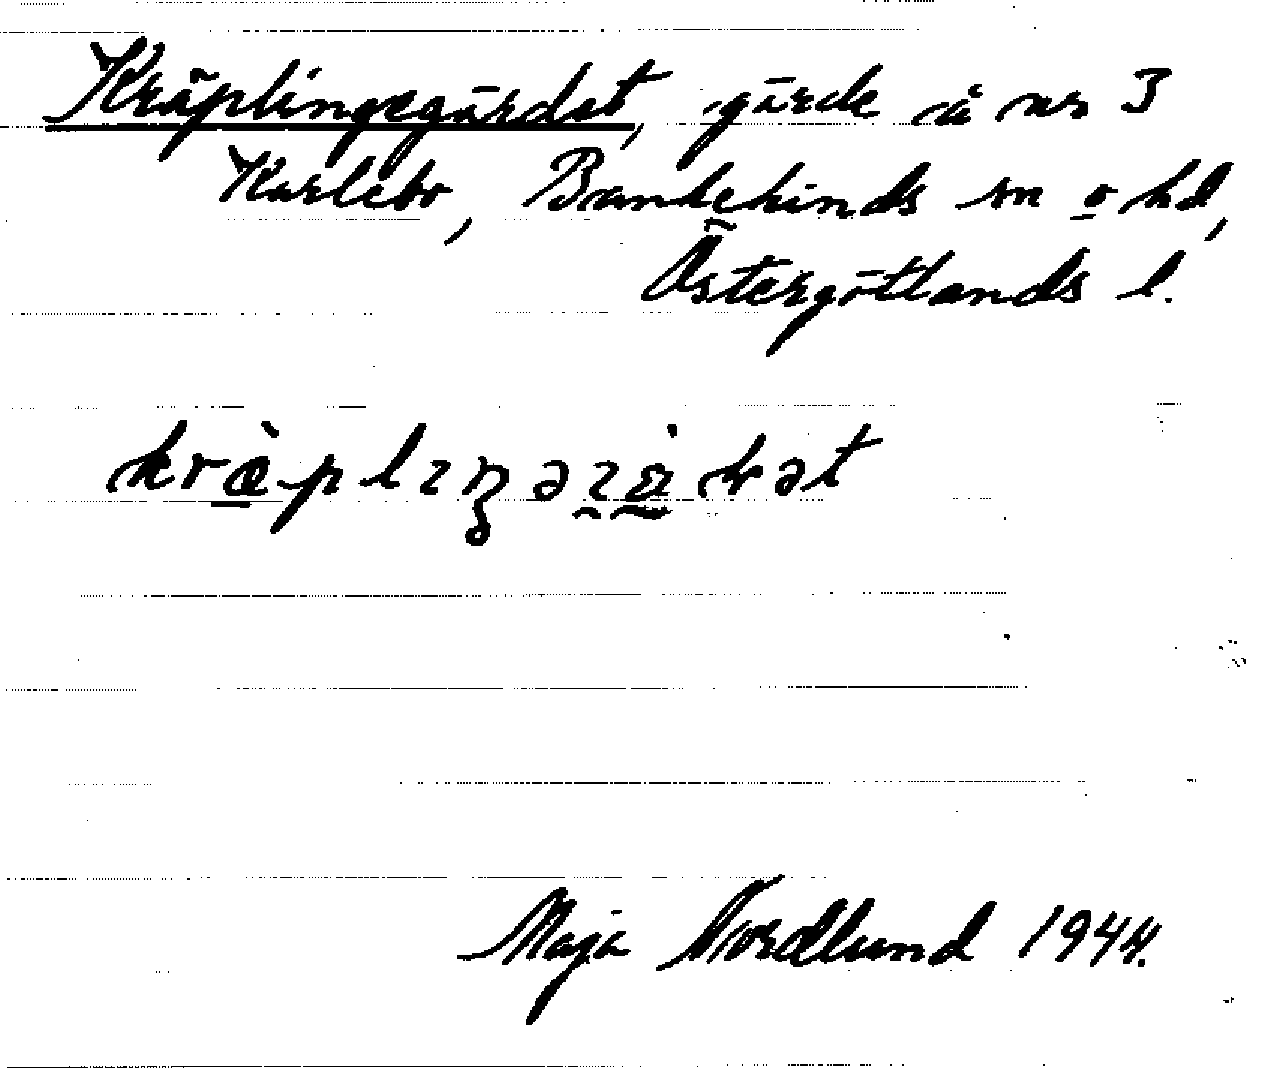 Kräplingegärdet, gärde å nr 3
Karlebo, Bankekinds sn o hd,
Östergötlands l.
Maja Nordlund 1944.